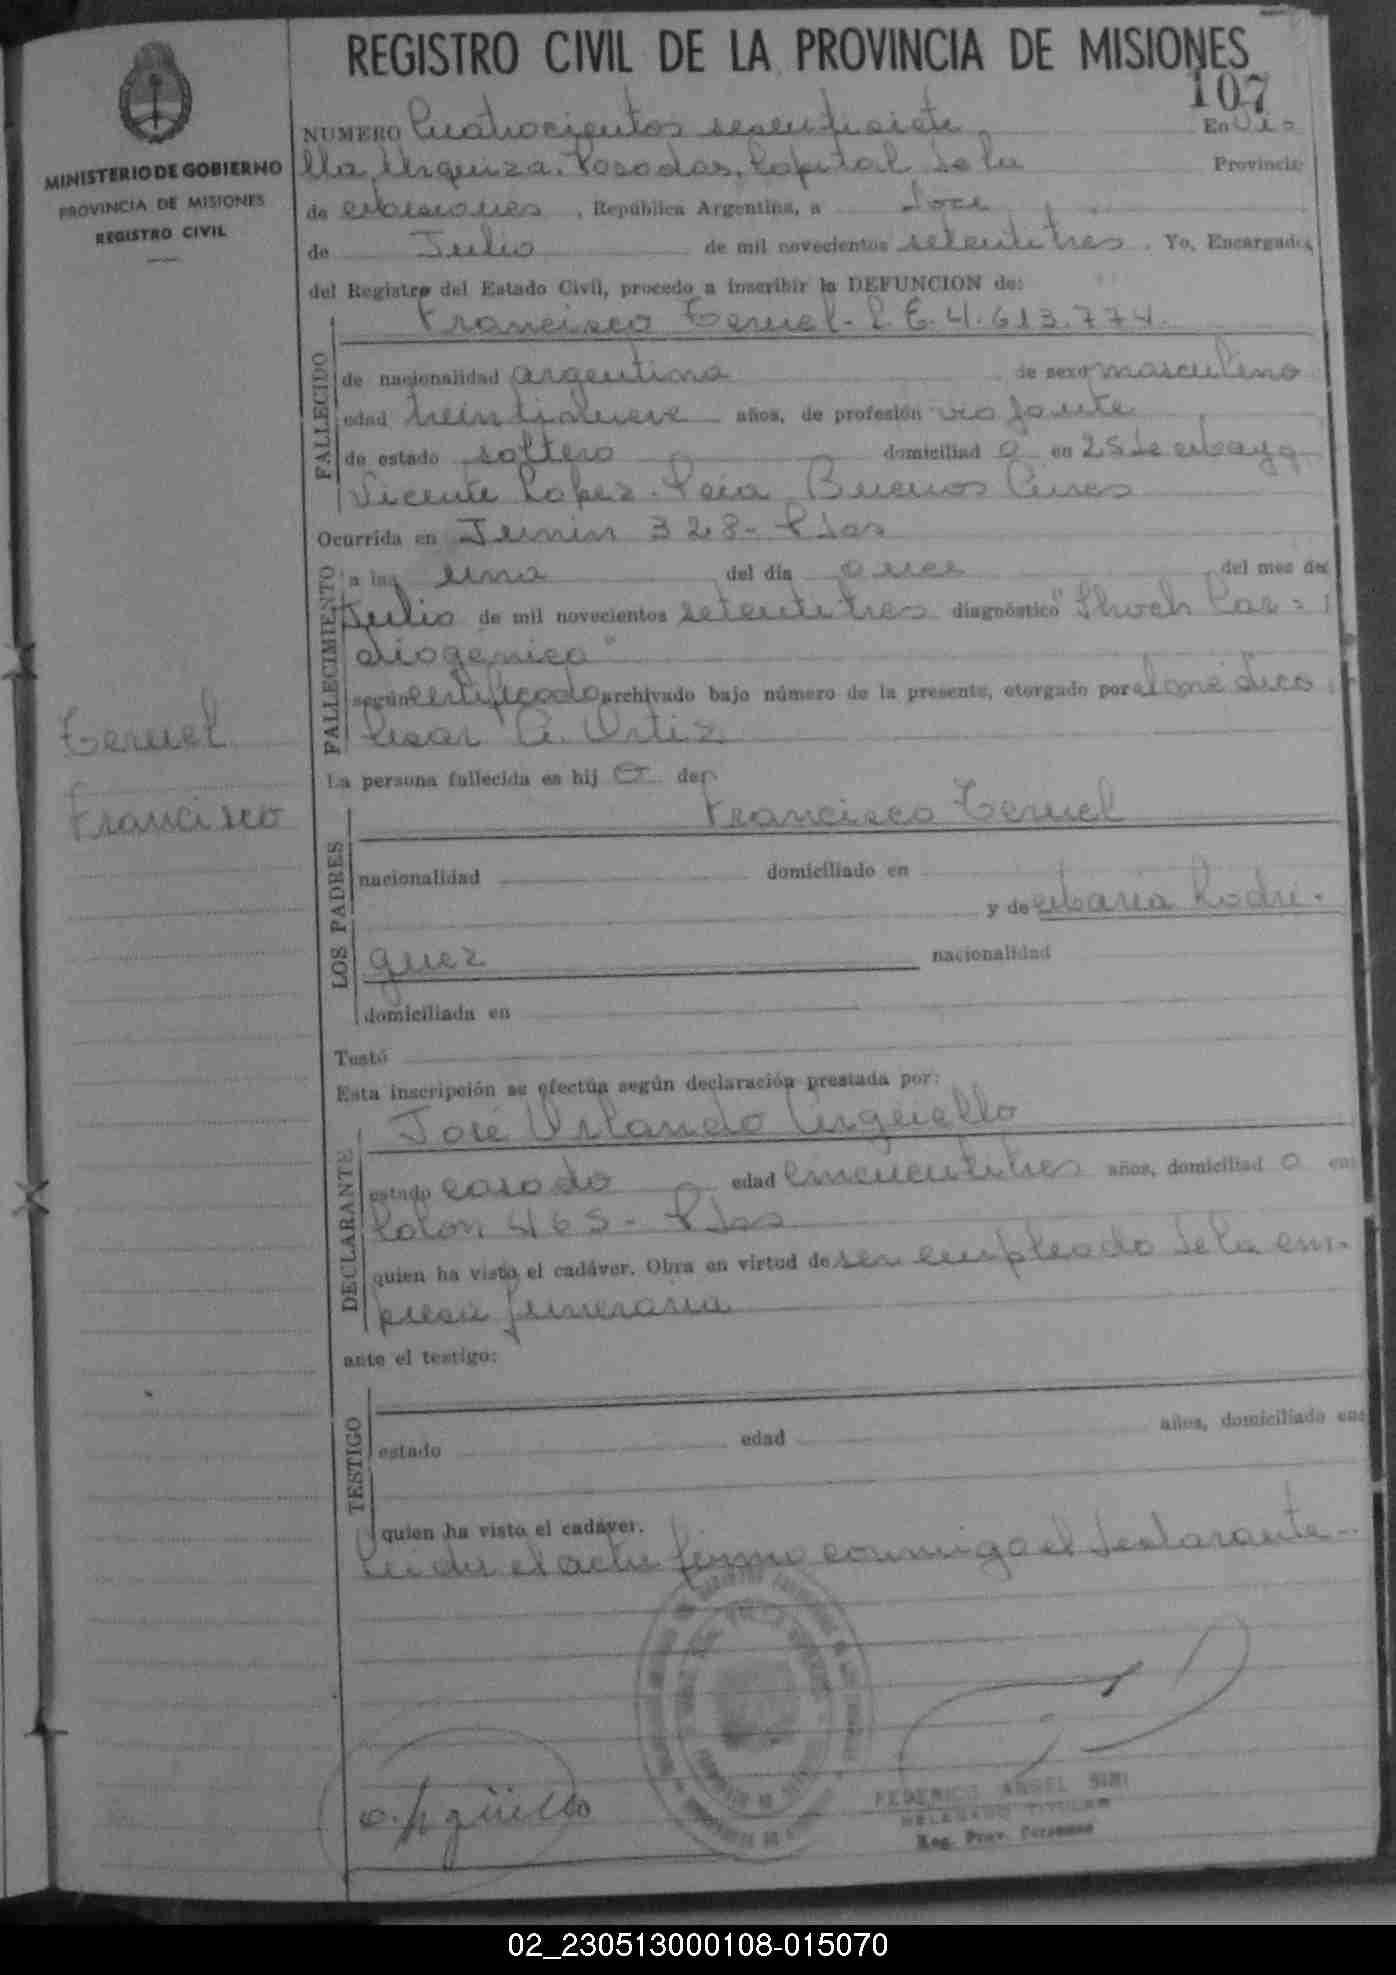 REGISTRO CIVIL DE LA PROVINCIA DE MISIONES
107
MINISTERIO DE GOBIERNO
PROVINCIA DE MISIONES
REGISTRO CIVIL
NUMERO Cuatrocientos sesentisiete En Vi=
lla Urquiza. Posadas, Capital de la Provincia
de Misiones, República Argentina, a doce
de Julio de mil novecientos setentitres. Yo, Encargado
del Registro del Estado Civil, procedo a inscribir la DEFUNCION de:
FALLECIDO
Francisco Teruel - L.E. 4.613.774.
de nacionalidad argentina de sexo masculino
edad treintinueve años, de profesión viajante
de estado soltero domiciliad o en 25 de Mayo
Vicente Lopez - Pcia Buenos Aires
Ocurrida en Junin 328 - Pdas
FALLECIMIENTO
a la una del día once del mes de
Julio de mil novecientos setentitres diagnóstico "Shoch Car=
diogénico"
según certificado archivado bajo número de la presente, otorgado por el médico
Cesar A. Ortiz
Teruel
Francisco
La persona fallecida es hij o de
LOS PADRES
Francisco Teruel
nacionalidad domiciliado en
y de Maria Rodri-
guez nacionalidad
domiciliada en
Testó
Esta inscripción se efectúa según declaración prestada por:
DECLARANTE
José Orlando Arguello
estado casado edad cincuentitres años, domiciliad o en
Colon 465 - Pdas
quien ha visto el cadáver. Obra en virtud de ser empleado de la em-
presa funeraria
ante el testigo:
TESTIGO
estado edad años, domiciliado en
quien ha visto el cadáver.
Leida el acta firma conmigo el declarante -
FEDERICO ANGEL SIRI
DELEGADO TITULAR
Reg. Prov. Personas
02_230513000108-015070